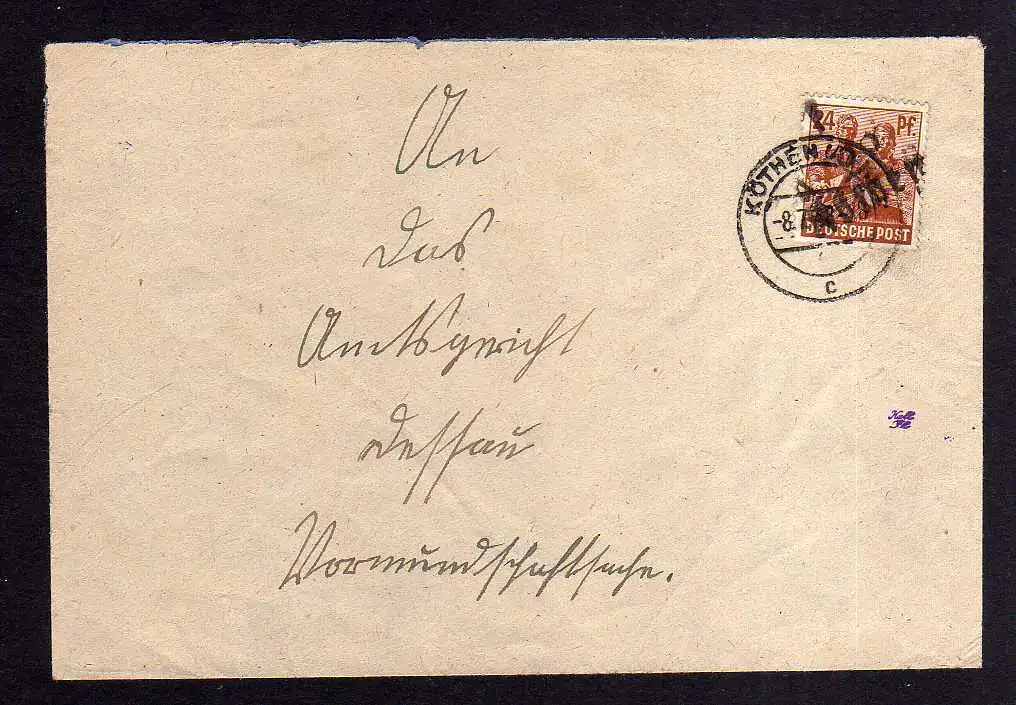 An
Das
Amtsgericht
Dessau
Vormundschaftsache.
24 Pf.
DEUTSCHE POST
KÖTHEN
-8.
c